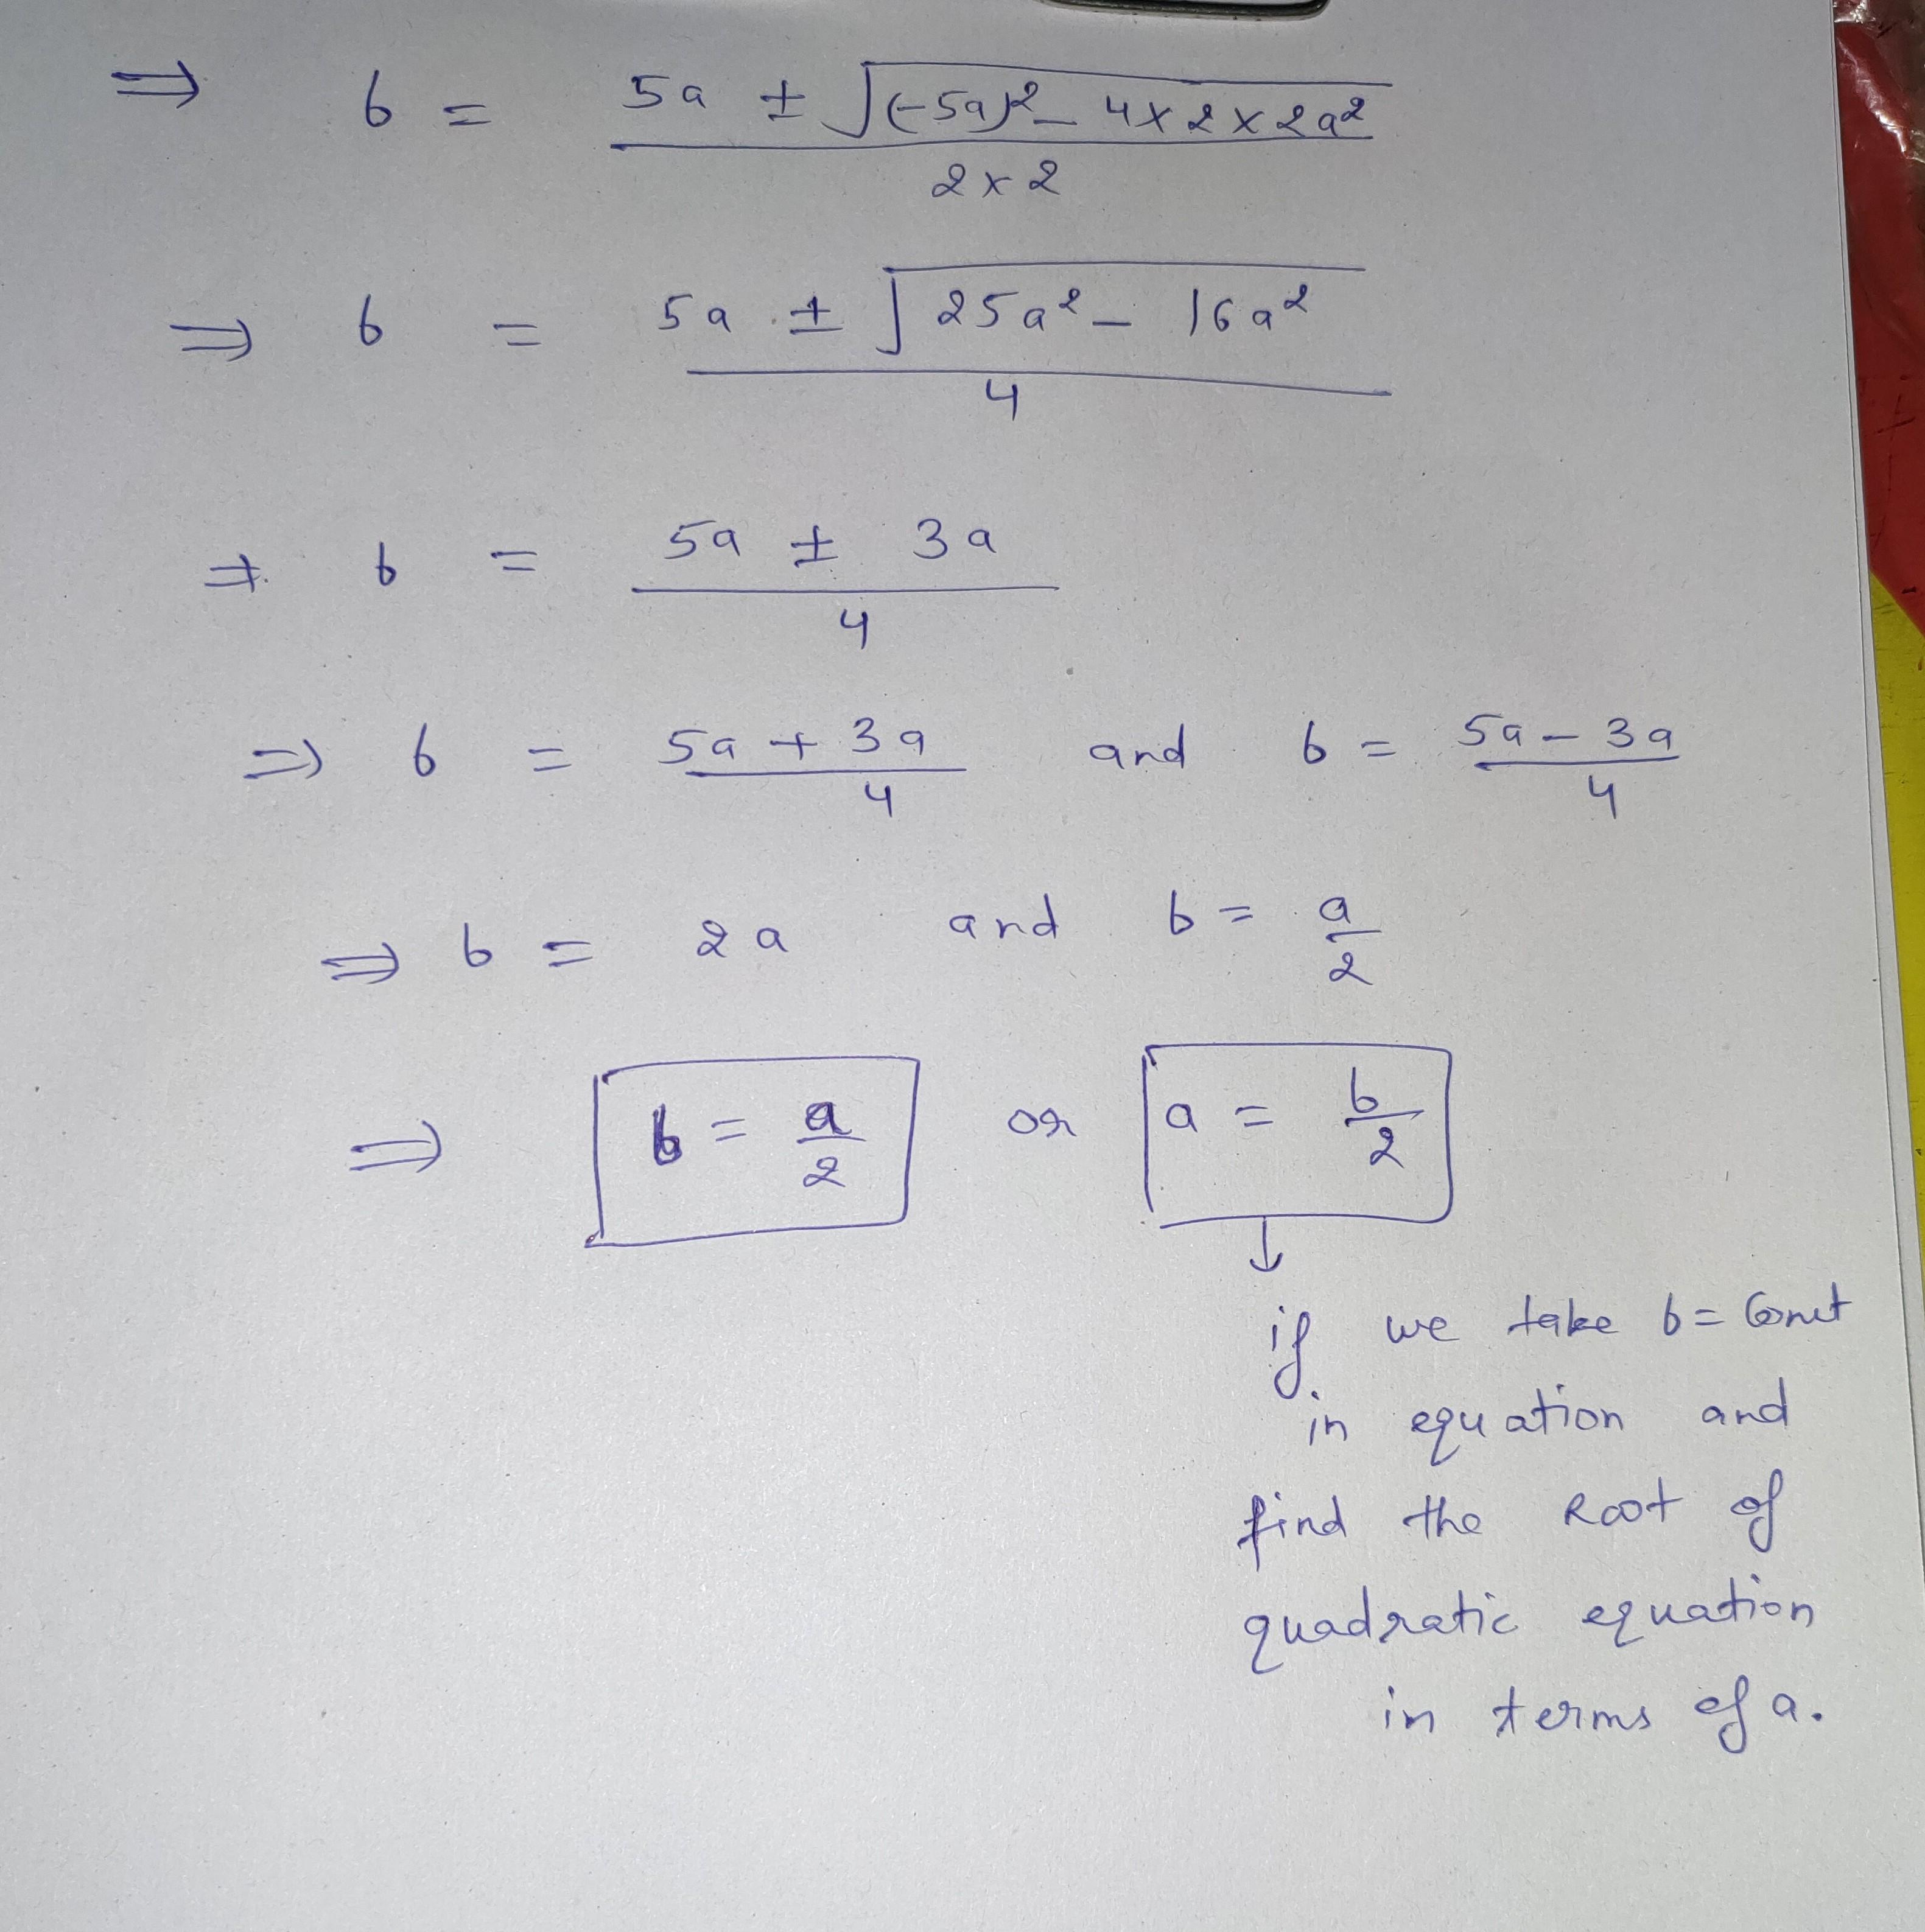 ⇒ b = (5a ± √((-5a)² - 4×2×2a²)) / (2×2)
⇒ b = (5a ± √(25a² - 16a²)) / 4
⇒ b = (5a ± 3a) / 4
⇒ b = (5a + 3a) / 4 and b = (5a - 3a) / 4
⇒ b = 2a and b = a/2
⇒ b = a/2 or a = b/2
↓
if we take b = Const
in equation and
find the Root of
quadratic equation
in terms of a.